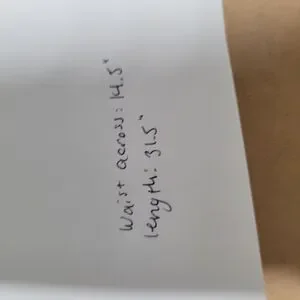 Waist across: 14.5"
length: 31.5"